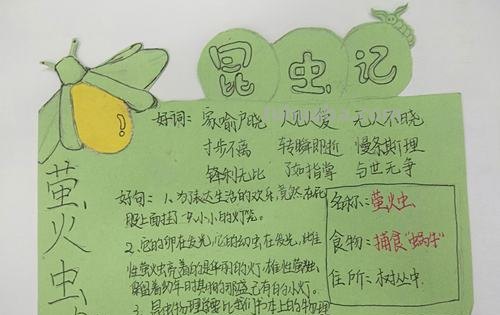 昆虫记
好词：家喻户晓 人见人爱 无人不晓
寸步不离 转瞬即逝 慢条斯理
锋利无比 了如指掌 与世无争
萤火虫
好句：1、为了表达生活的欢乐，竟然在屁
股上面挂了一小小的灯笼。
2、它的卵在发光，它的幼虫在发光，此
性萤火虫亮着的是年刚的灯，雄性萤
保留着幼年时具有的那盏已有的小灯。
3、昆虫物理学要比我们书本上的物理
名称：萤火虫
食物：捕食"蜗牛"
住所：树丛中